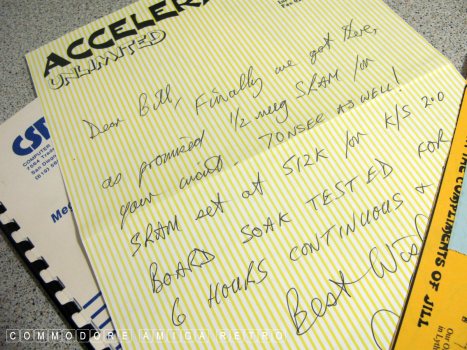 ACCELERA
UNLIMITED
Dear Bill, Finally we got there,
as promised 1/2 meg SRAM for
your unit - 70NSEC AS WELL!
SRAM set at 512K for K/S 2.00
BOARD SOAK TESTED FOR
6 HOURS CONTINUOUS &
Best Wish
CSA
COMPUTER
San Diego
Me
THE COMPLIMENTS OF JILL
Our O
in Lyth
COMMODORE AMIGA RETRO